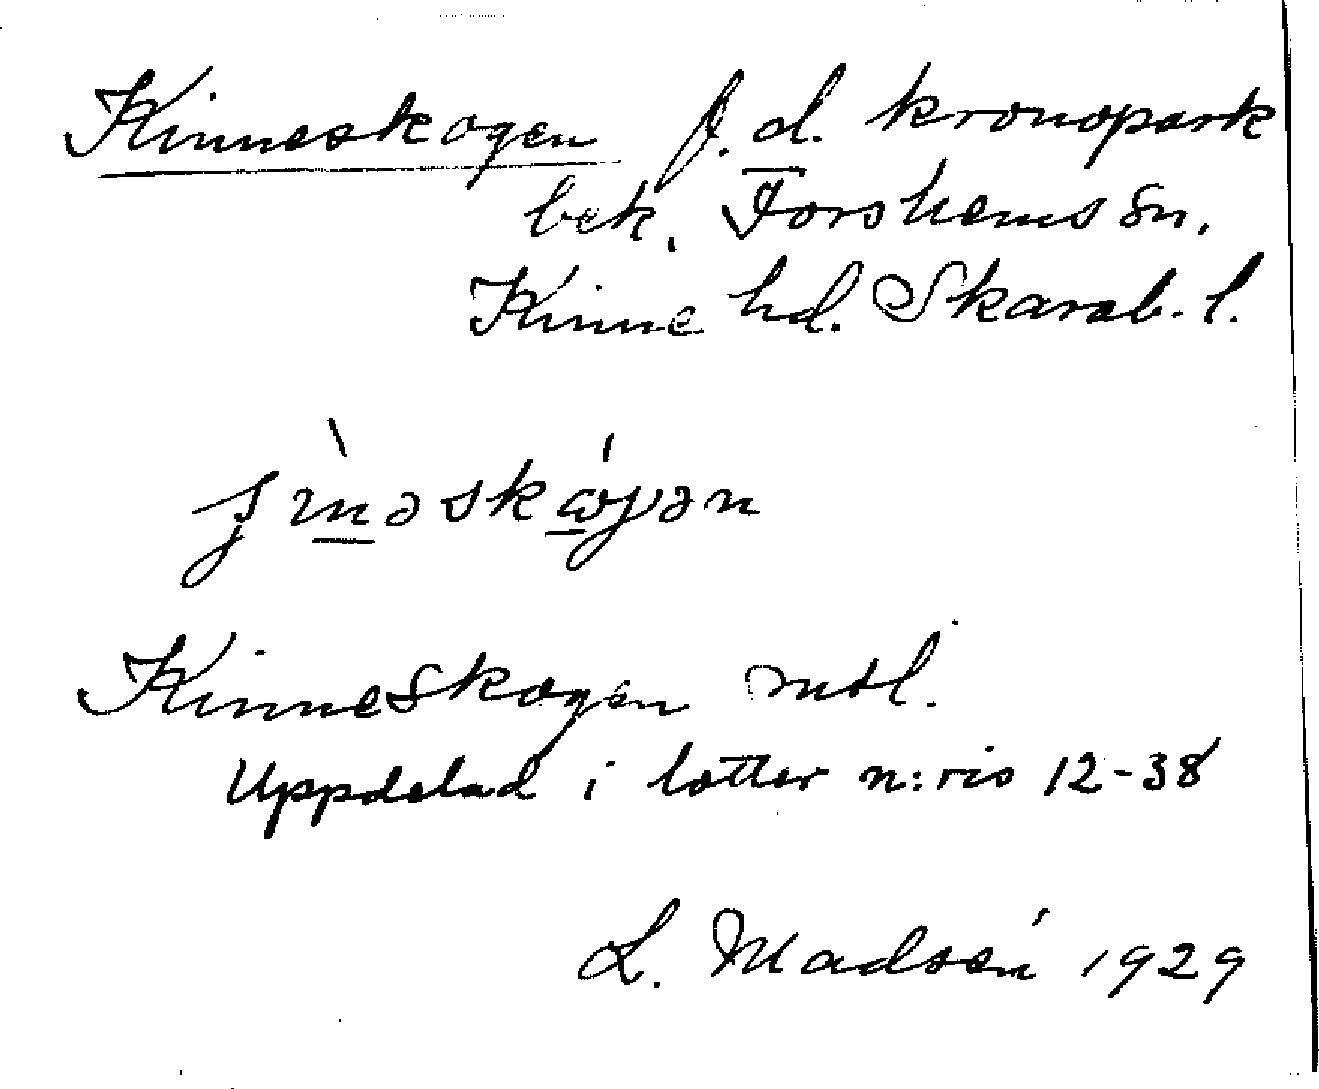 Kinneskogen f. d. kronopark
bek. Forshems sn.
Kinne hd. Skarab. l.
Kinneskogen mtl.
Uppdelad i lotter n:ris 12-38
L. Madsén 1929